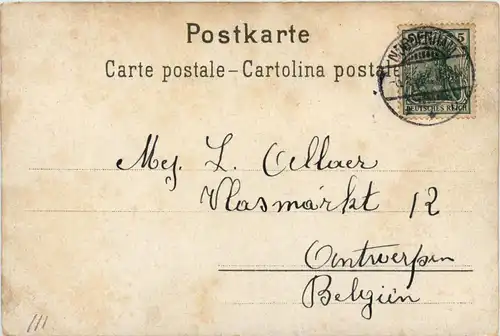 Postkarte
Carte postale-Cartolina postale
5
DEUTSCHES REICH
Mej. L. Ollaer
Vlasmarkt 12
Antwerpen
Belgiën
111